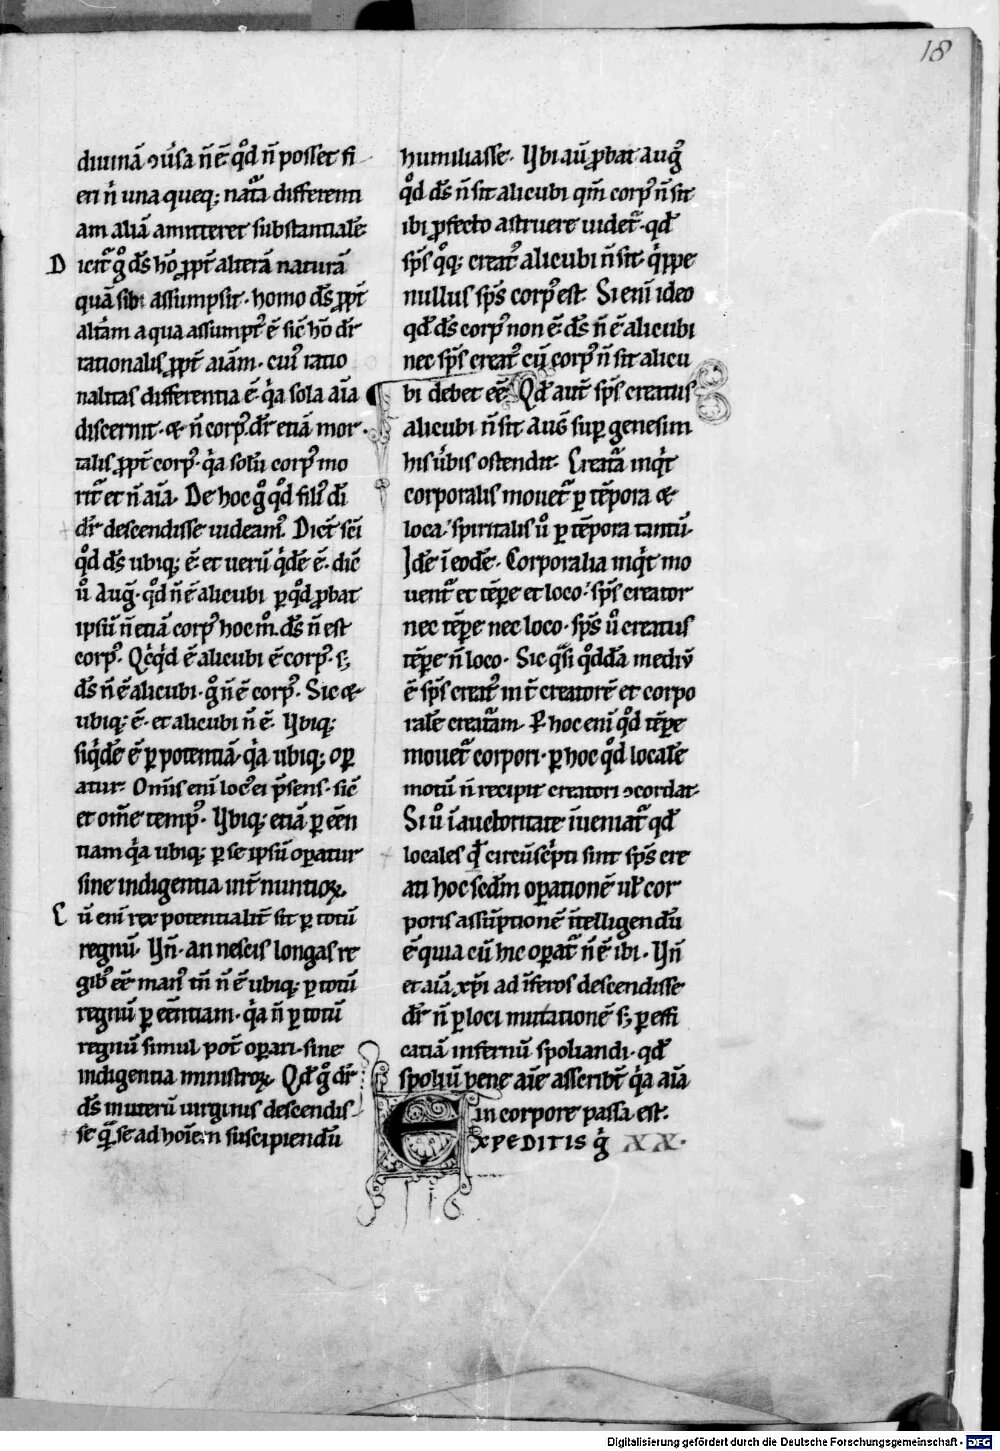 18
diuinā ꝯũsa ñ ē qͦd ñ posset fi
eri n͛ una queq; nat͛a differenti
am aliā amitteret substantialē.
Dicit͛ gͦ ds̄ hō ꝓpt͛ alterā naturā
quā sibi assumpsit. homo ds̄ ꝓpt͛
alt͛am a qua assumpt᷒ ē sic̄ hō dr̄
rationalis ꝓpt͛ aīam. cui᷒ ratio
nalitas differentia ē. qͥa sola aīa
discernit. & ñ corp᷒. dr̄ etiā mor
talis ꝓpt͛ corp᷒. qͥa solū corp᷒ mo
rit͛ et ñ aīa. De hoc gͦ qͦd fili᷒ dī
dr̄ descendisse uideam᷒. Dict̄ scī
qͦd ds̄ ubiq; ē. et uerū qͥdē ē. dic̄
ũ Aug̃. qͦd ñ ē alicubi ꝑ qͦd ꝓbat
ipsū ñ etiā corp᷒ hoc mͦ. ds̄ ñ est
corp᷒. Qͥcqͥd ē alicubi ē corp᷒. s;
ds̄ ñ ē alicubi. gͦ ñ ē corp᷒. Sic &
ubiq; ē. et alicubi ñ ē. Vbiq;
siqͥdē ē ꝑ potentiā. qͥa ubiq; oꝑ
atur. Om̄is eni loc᷒ ei p̄sens. sic̄
et om̄e temp᷒. Vbiq; etiā ꝑ eēn
tiam qͥa ubiq; ꝑ se ipsū oꝑatur
sine indigentia int͛ nuntioꝝ.
Cū eni rex potentialit͛ sit ꝑ totū
regnū. Vñ. an nescis longas re
gib᷒ eē man᷒ tñ ñ ē ubiq; ꝑ totū
regnū ꝑ eēntiam. qͥa ñ ꝑ totū
regnū simul pot̄ oꝑari. sine
indigentia ministroꝝ. Qd̄ gͦ dr̄
ds̄ in uterū uirginis descendis
se qͣ se ad hoīem suscipiendū
humiliasse. Vbi aū ꝓbat Aug̃
qͦd ds̄ ñ sit alicubi qm̄ corp᷒ ñ sit
ibi ꝓfecto astruere uidet͛. qd̄
sps̄ qͦq; creat᷒ alicubi ñ sit. qͥppe
nullus sps̄ corp᷒ est. Si eni ideo
qd̄ ds̄ corp᷒ non ē ds̄ ñ ē alicubi
nec sps̄ creat᷒ cū corp᷒ ñ sit alicu
bi debet eē. Qd̄ aut̄ sps̄ creatus
alicubi ñ sit Aug̃ suꝑ genesim
his ũbis ostendit. Creat͛a inqͥt
corporalis mouet͛ ꝑ tēpora &
loca. spiritalis ũ ꝑ tēpora tantū.
Idē ī eodē. Corporalia inqͥt mo
uent͛ et tēpe et loco. sps̄ creator
nec tēpe nec loco. sps̄ ũ creatus
tēpe ñ loco. Sic qͣsi qͦddā mediū
ē sps̄ creat᷒ int͛ creatorē et corpo
ralē creat͛am. Ꝑ hoc eni qͦd tēpe
mouet͛ corpori. ꝑ hoc qͦd localē
motū ñ recipit creatori ꝯcordat.
Si ũ ī auctoritate īueniat͛ qd̄
locales ł circūsc͛pti sint sps̄ cre
ati hoc scdm̄ oꝑationē uł cor
poris assūptionē īntelligendū
ē. quia cū hic oꝑat͛ ñ ē ibi. Vñ
et aīa xp̄i ad īferos descendisse
dr̄ ñ ꝑ loci mutationē s; ꝑ effi
catiā infernū spoliandi. qd̄
spoliū pene aīe asscribt̄ qͥa aīa
in corpore passa est.
EXPEDITIS gͥ XX.
Digitalisierung gefördert durch die Deutsche Forschungsgemeinschaft - DFG